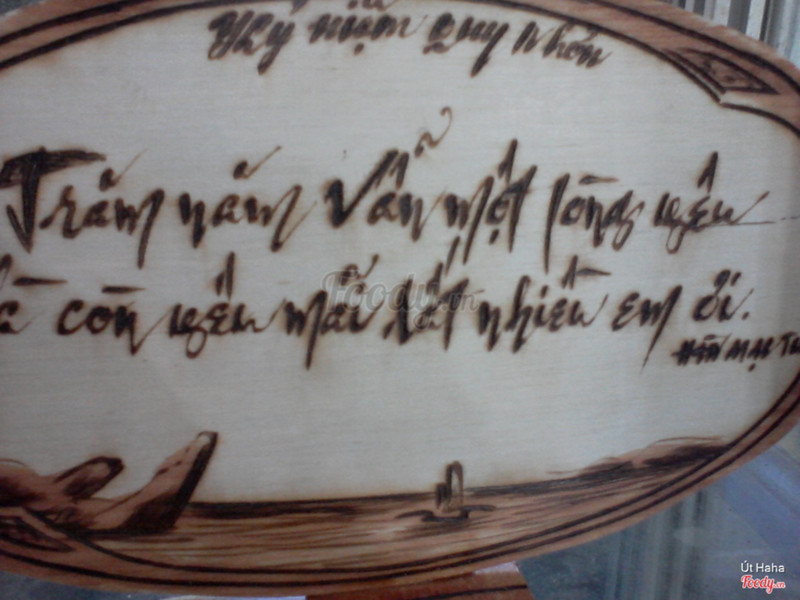 Kỷ niệm Quy Nhơn
Trăm năm Vẫn một lòng yêu
Và còn yêu mãi rất nhiều em ơi.
Hàn Mặc Tử
Foody.vn
Út Haha
Foody.vn